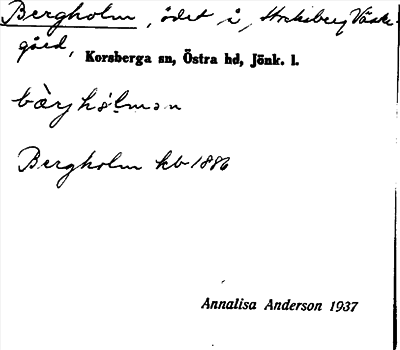 Bergholm, ödet i, Stocksberg Väster-
gård,
Korsberga sn, Östra hd, Jönk. l.
bàrjhólmən
Bergholm kb 1886
Annalisa Anderson 1937